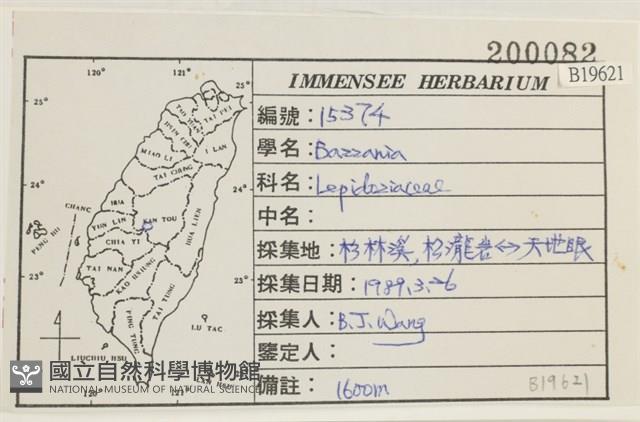 200082
B19621
IMMENSEE HERBARIUM
編號：15374
學名：Bazzania
科名：Lepidoziaceae
中名：
採集地：杉林溪，松瀧岩↔天地眼
採集日期：1989.3.26
採集人：B.J.Wang
鑒定人：
備註：1600m
B19621
120° 121°
25° 25°
TAI PEI
I LAN
MIAO LI
TAI CHUNG
24° 24°
CHANG
HUA
NAN TOU
HUA LIEN
YUN LIN
PENG HU
CHIA YI
23° 23°
TAI NAN
KAO HSIUNG
TAI TUNG
PING TUNG
LU TAO
LIUCHIU HSU
LAN HSU
120° 121°
國立自然科學博物館
NATIONAL MUSEUM OF NATURAL SCIENCE